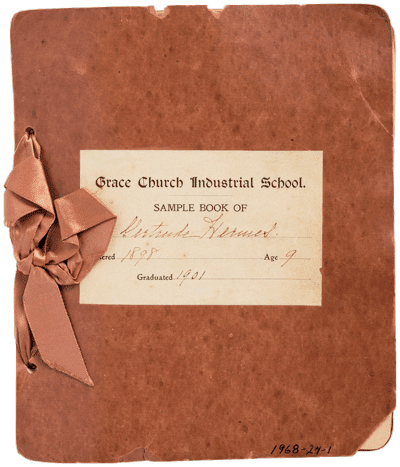 Grace Church Industrial School.
SAMPLE BOOK OF
Gertrude Hermes.
ered 1898 Age 9
Graduated 1901
1968-24-1